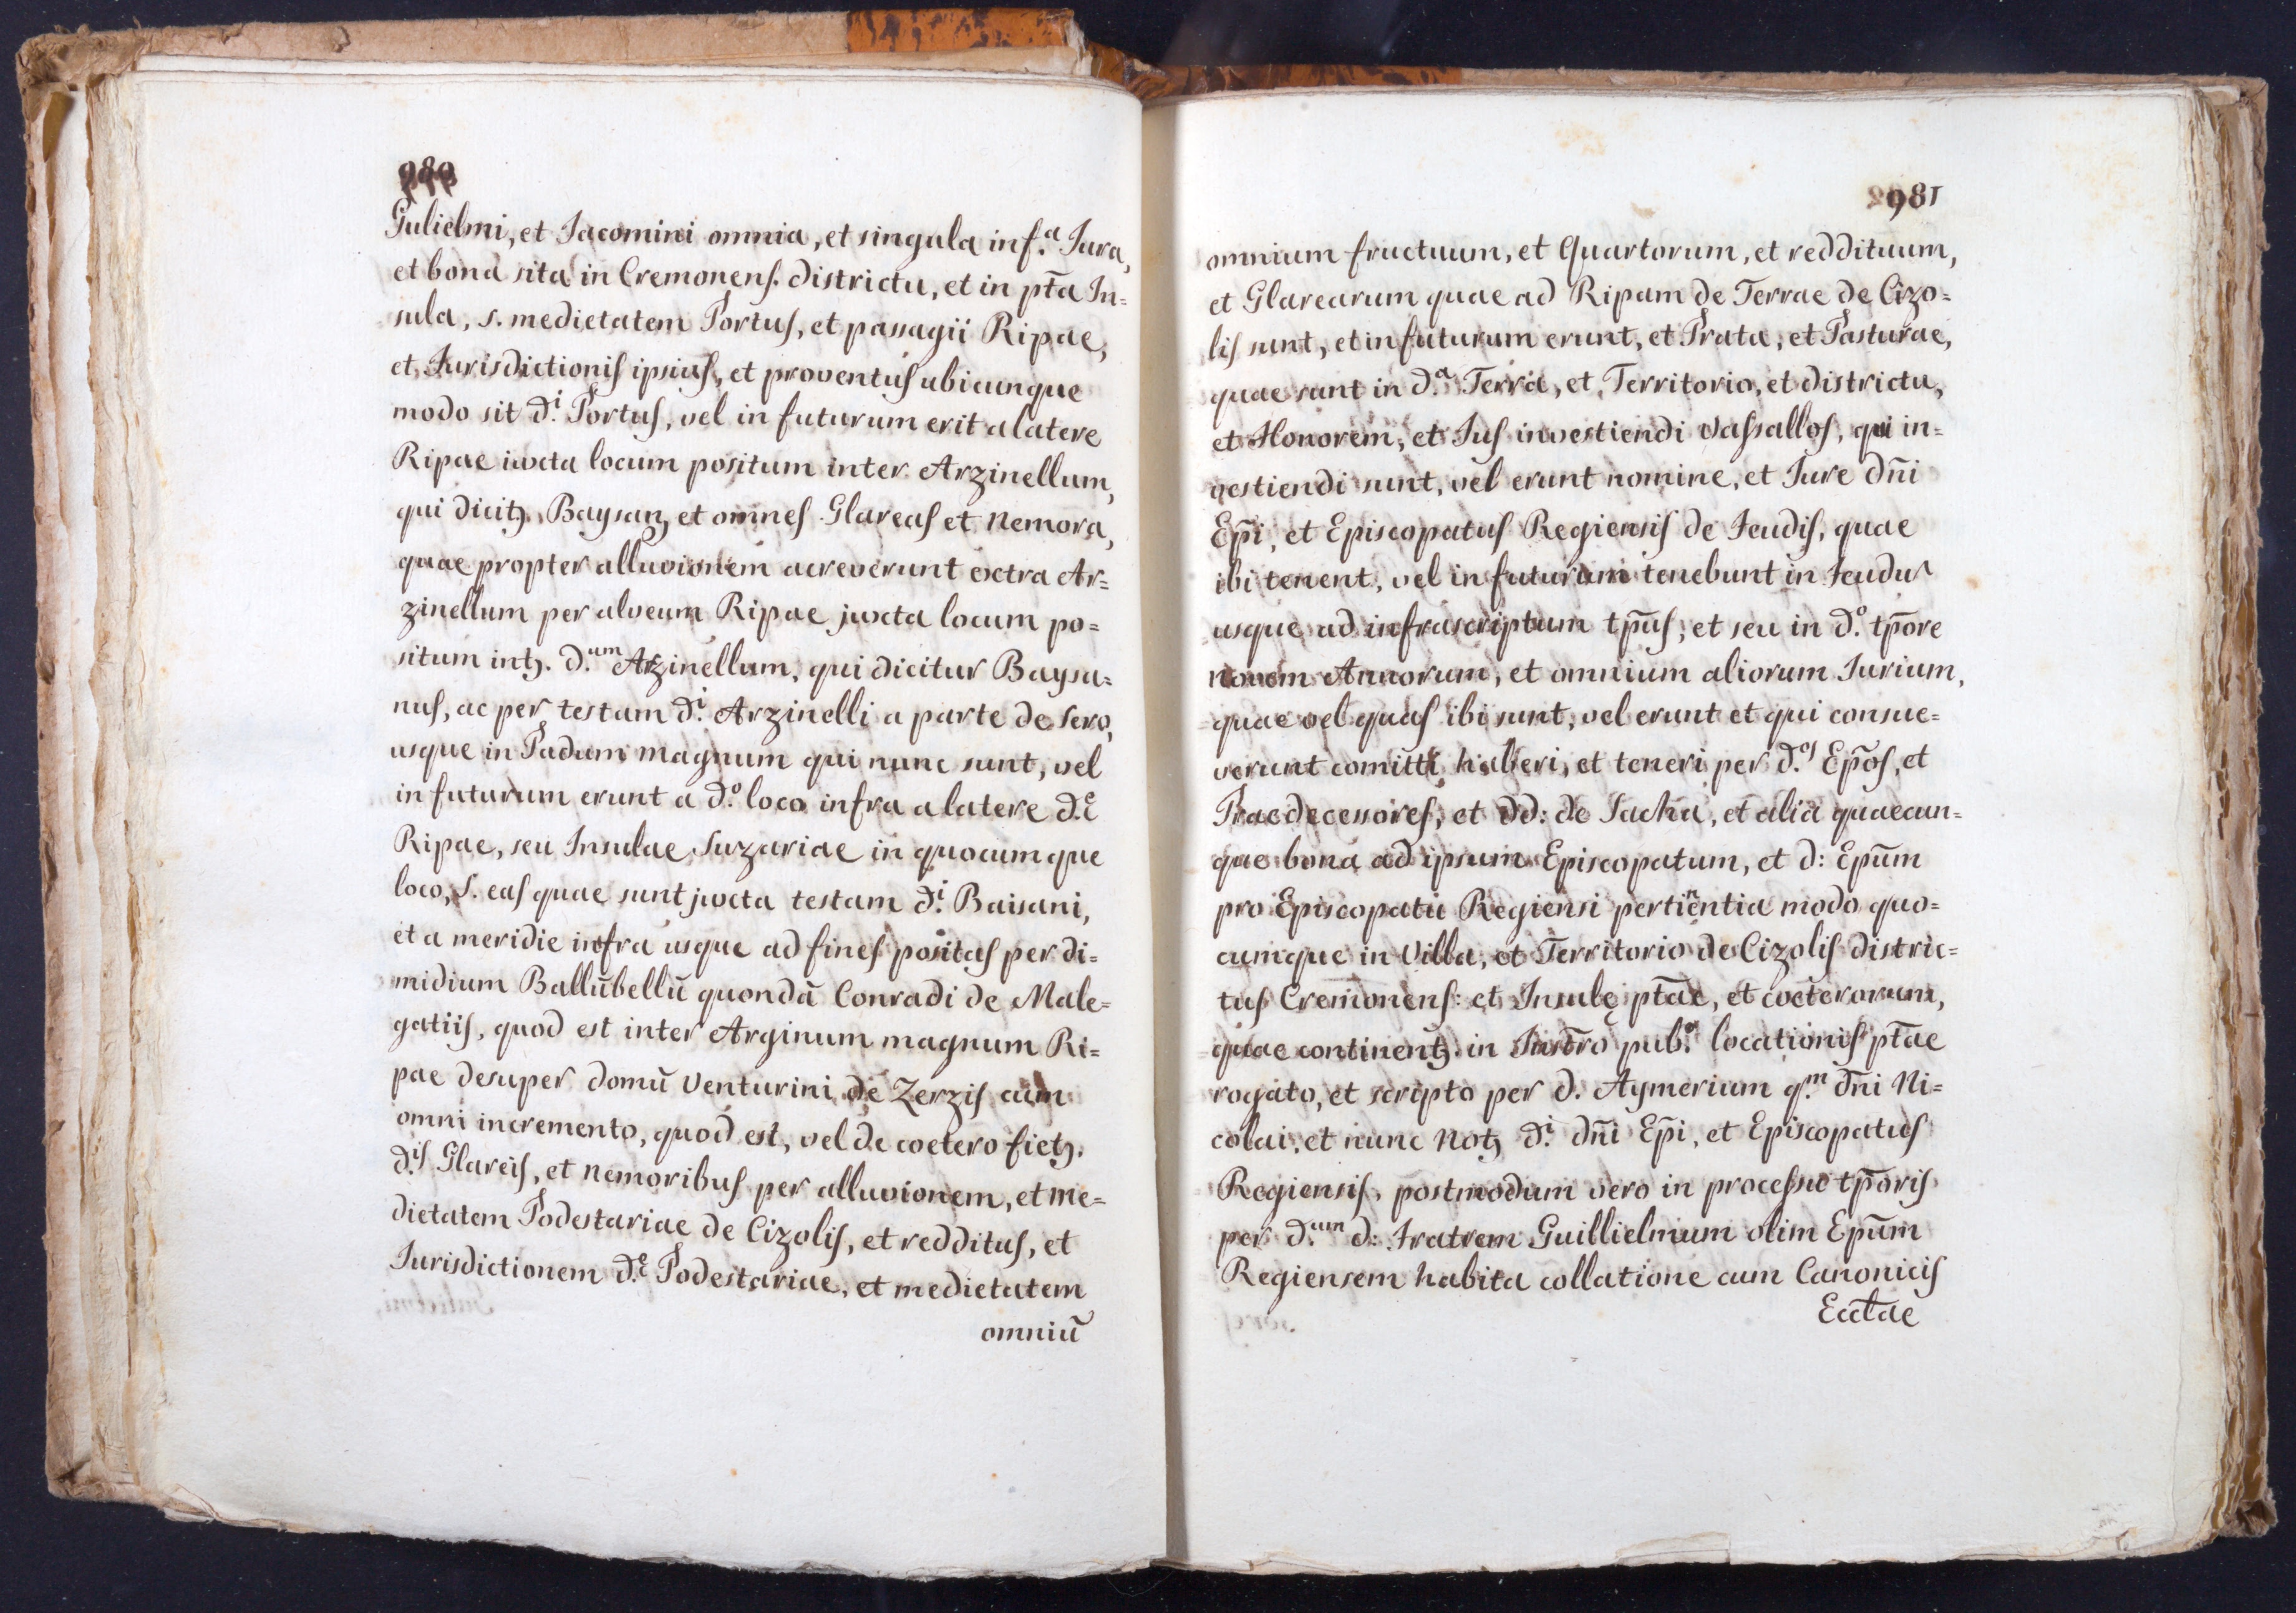 980
Gulielmi, et Jacomini omnia, et singula inf.ª Jura,
et bona sita in Cremonens. districtu, et in pt̄a In=
sula, s. medietatem Portus, et passagii Ripae,
et Jurisdictionis ipsius, et proventus ubicunque
modo sit d.ⁱ Portus, vel in futurum erit a latere
Ripae iuxta locum positum inter Arzinellum,
qui dicitꝫ Baysanꝫ et omnes Glareas et nemora,
quae propter alluvionem acreverunt extra Ar=
zinellum per alveum Ripae juxta locum po=
situm intꝫ. d.ᵘᵐ Arzinellum, qui dicitur Baysa=
nus, ac per testam d.ⁱ Arzinelli a parte de sero,
usque in Padum magnum qui nunc sunt, vel
in futurum erunt a d.º loco infra a latere d.ᵉ
Ripae, seu Insulae Suzariae in quocumque
loco, s. eas quae sunt juxta testam d.ⁱ Baisani,
et a meridie infra usque ad fines positas per di=
midium Ballūbellū quondā Conradi de Male=
gatiis, quod est inter Arginum magnum Ri=
pae desuper domū Venturini de Zerzis cum
omni incremento, quod est, vel de coetero fietꝫ.
d.ⁱˢ Glareis, et nemoribus per alluvionem, et me=
dietatem Podestariae de Cizolis, et redditus, et
Jurisdictionem d.ᵉ Podestariae, et medietatem
omniū
981
omnium fructuum, et Quartorum, et reddituum,
et Glarearum quae ad Ripam de Terrae de Cizo=
lis sunt, et in futurum erunt, et Prata, et Pasturae,
quae sunt in d.ª Terra, et Territorio, et districtu,
et Honorem, et Jus investiendi Vassallos, qui in=
vestiendi sunt, vel erunt nomine, et Jure dn̄i
Ep̄i, et Episcopatus Regiensis de Feudis, quae
ibi tenent, vel in futurum tenebunt in Feudū
usque ad infrascriptum tp̄us, et seu in d.º tp̄ore
novem Annorum, et omnium aliorum Jurium,
quae vel quas ibi sunt, vel erunt et qui consue=
verunt comitti, haberi, et teneri per d.ᵒˢ Ep̄os, et
Praedecessores, et dd: de Sacha, et alia quaecun=
que bona ad ipsum Episcopatum, et d: Ep̄um
pro Episcopatu Regiensi pertinentia modo quo=
cumque in Villa, et Territorio de Cizolis distric=
tus Cremonens: et Insulę pt̄ae, et coeterorum,
quae continentꝫ. in Instr̄o pub.º locationis pt̄ae
rogato, et scripto per d. Aymerium q.ᵐ dn̄i Ni=
colai, et nunc Notꝫ d.ⁱ dn̄i Ep̄i, et Episcopatus
Regiensis, postmodum vero in processu tp̄oris
per d.ᵘᵐ d: Fratrem Guillielmum olim Ep̄um
Regiensem habita collatione cum Canonicis
Eccl̄ae